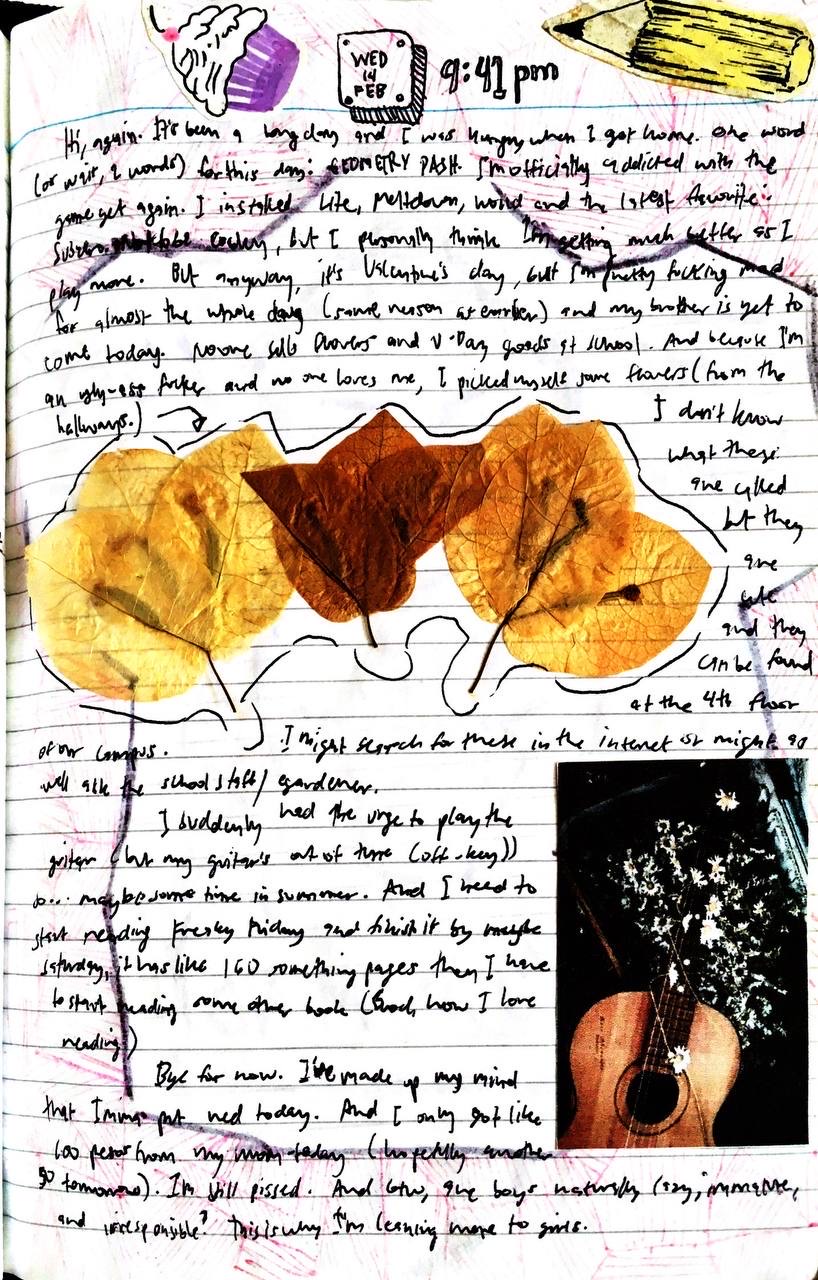 WED
14
FEB
9:41 pm
Hi, again. It's been a long day and I was hungry when I got home. One word
(or wait, 2 words) for this day: GEOMETRY DASH. I'm officially addicted with the
game yet again. I installed Lite, Meltdown, World and the latest favorite:
Subzero. but I personally think I'm getting much better as I
play more. But anyway, it's Valentine's day, but I'm pretty fucking mad
for almost the whole day (same reason as earlier) and my brother is yet to
come today. No one sells flowers and V-Day goods at school. And because I'm
an ugly-ass fucker and no one loves me, I picked myself some flowers (from the
hallways.)
I don't know
what these
are called
but they
are
cute
and they
can be found
at the 4th floor
of our campus. I might search for these in the internet or might as
well ask the school staff/gardener.
I suddenly had the urge to play the
guitar (but my guitar's out of tune (off-key))
so... maybe some time in summer. And I need to
start reading Freaky Friday and finish it by maybe
Saturday, it has like 160 something pages then I have
to start reading some other book (God, how I love
reading.)
Bye for now. I've made up my mind
that Imma put red today. And I only got like
100 pesos from my mom today (hopefully another
50 tomorrow). I'm still pissed. And btw, are boys naturally lazy, immature,
and irresponsible? This is why I'm leaning more to girls.